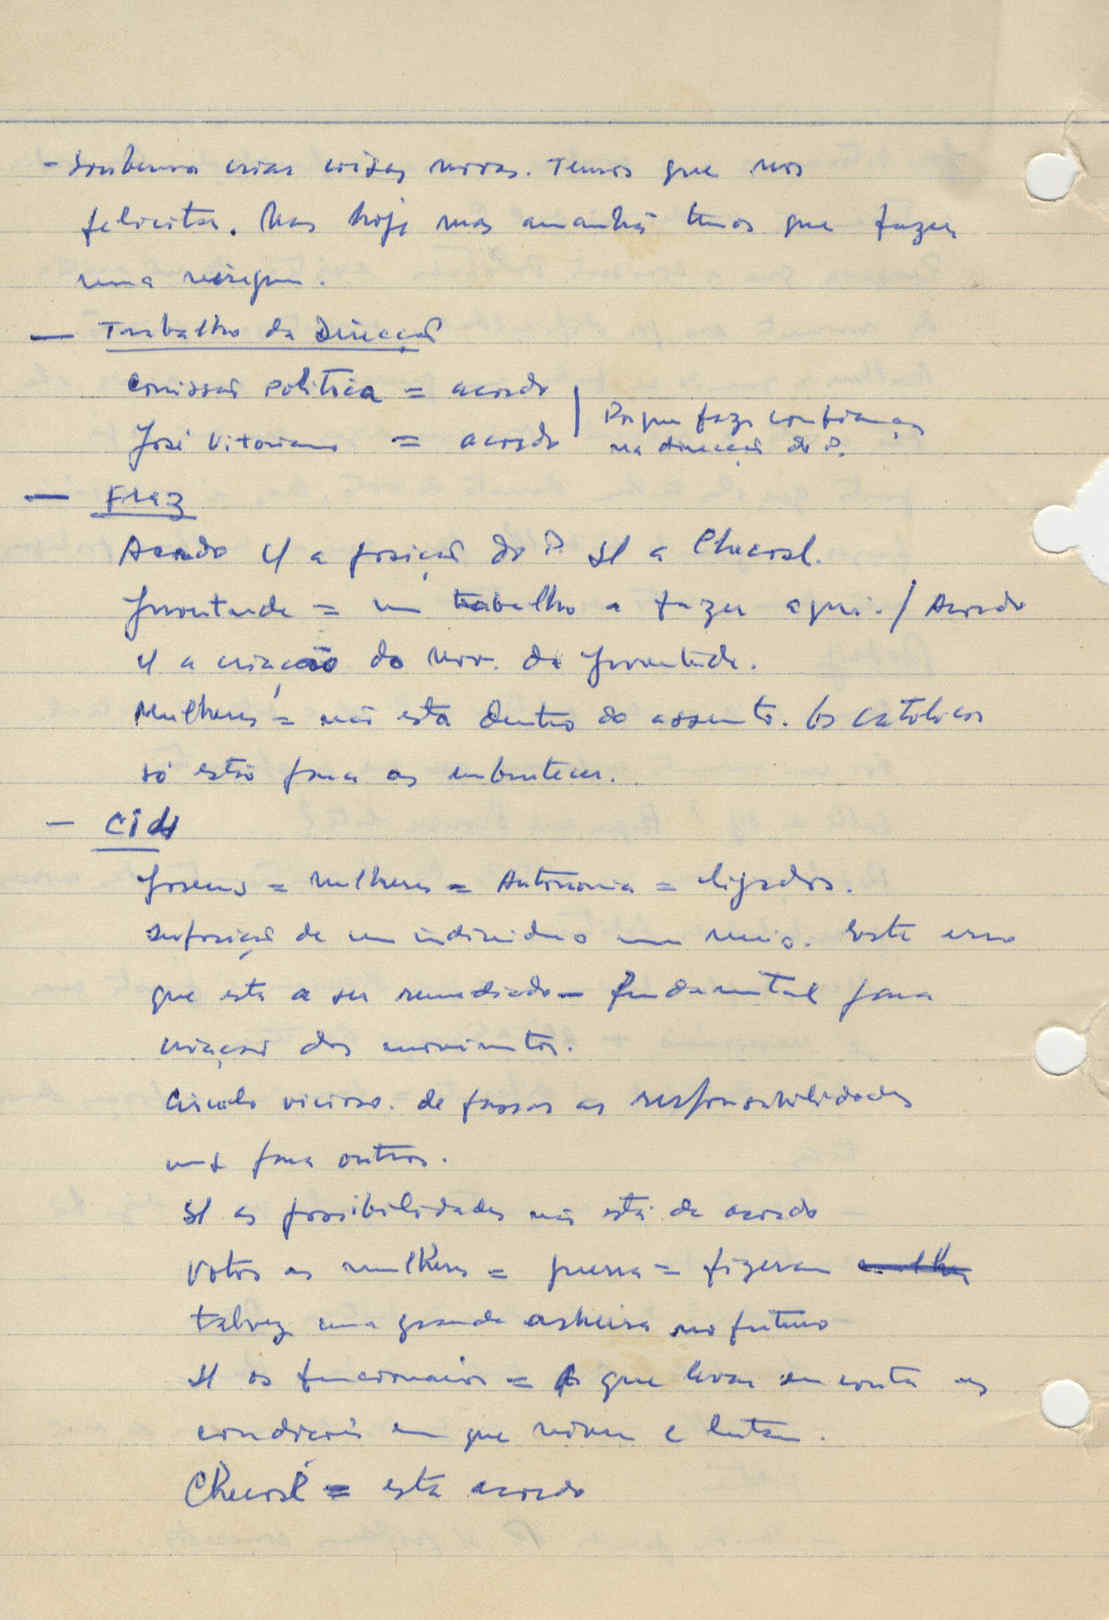 - Soubemos criar coisas novas. Temos que nos
felicitar. Mas hoje mas amanhã temos que fazer
uma
— Trabalho da Direcção
Comissão Politica = acordo
José Vitoriano = acordo | Porque faz confiança
na direcção do P.
— Fraz
Acordo c/ a posição do P. s/ a Checosl.
Juventude = um trabalho a fazer aqui. / Acordo
c/ a criação do mov. da Juventude.
Mulheres = não está dentro do assunto. Os catolicos
só estão para as embrutecer.
- Cid
Jovens = Mulheres = Autonomia = ligados.
Sobreposição de um individuo num meio. Este erro
que está a ser remediado - fundamental para
criação dos movimentos.
Circulo vicioso. de passar as responsabilidades
uns para outros.
S/ as possibilidades não está de acordo
Votos as mulheres = guerra = fizeram
talvez uma grande asneira no futuro
S/ os funcionarios = que levar em conta as
condições em que vivem e lutam.
Checosl = está acordo